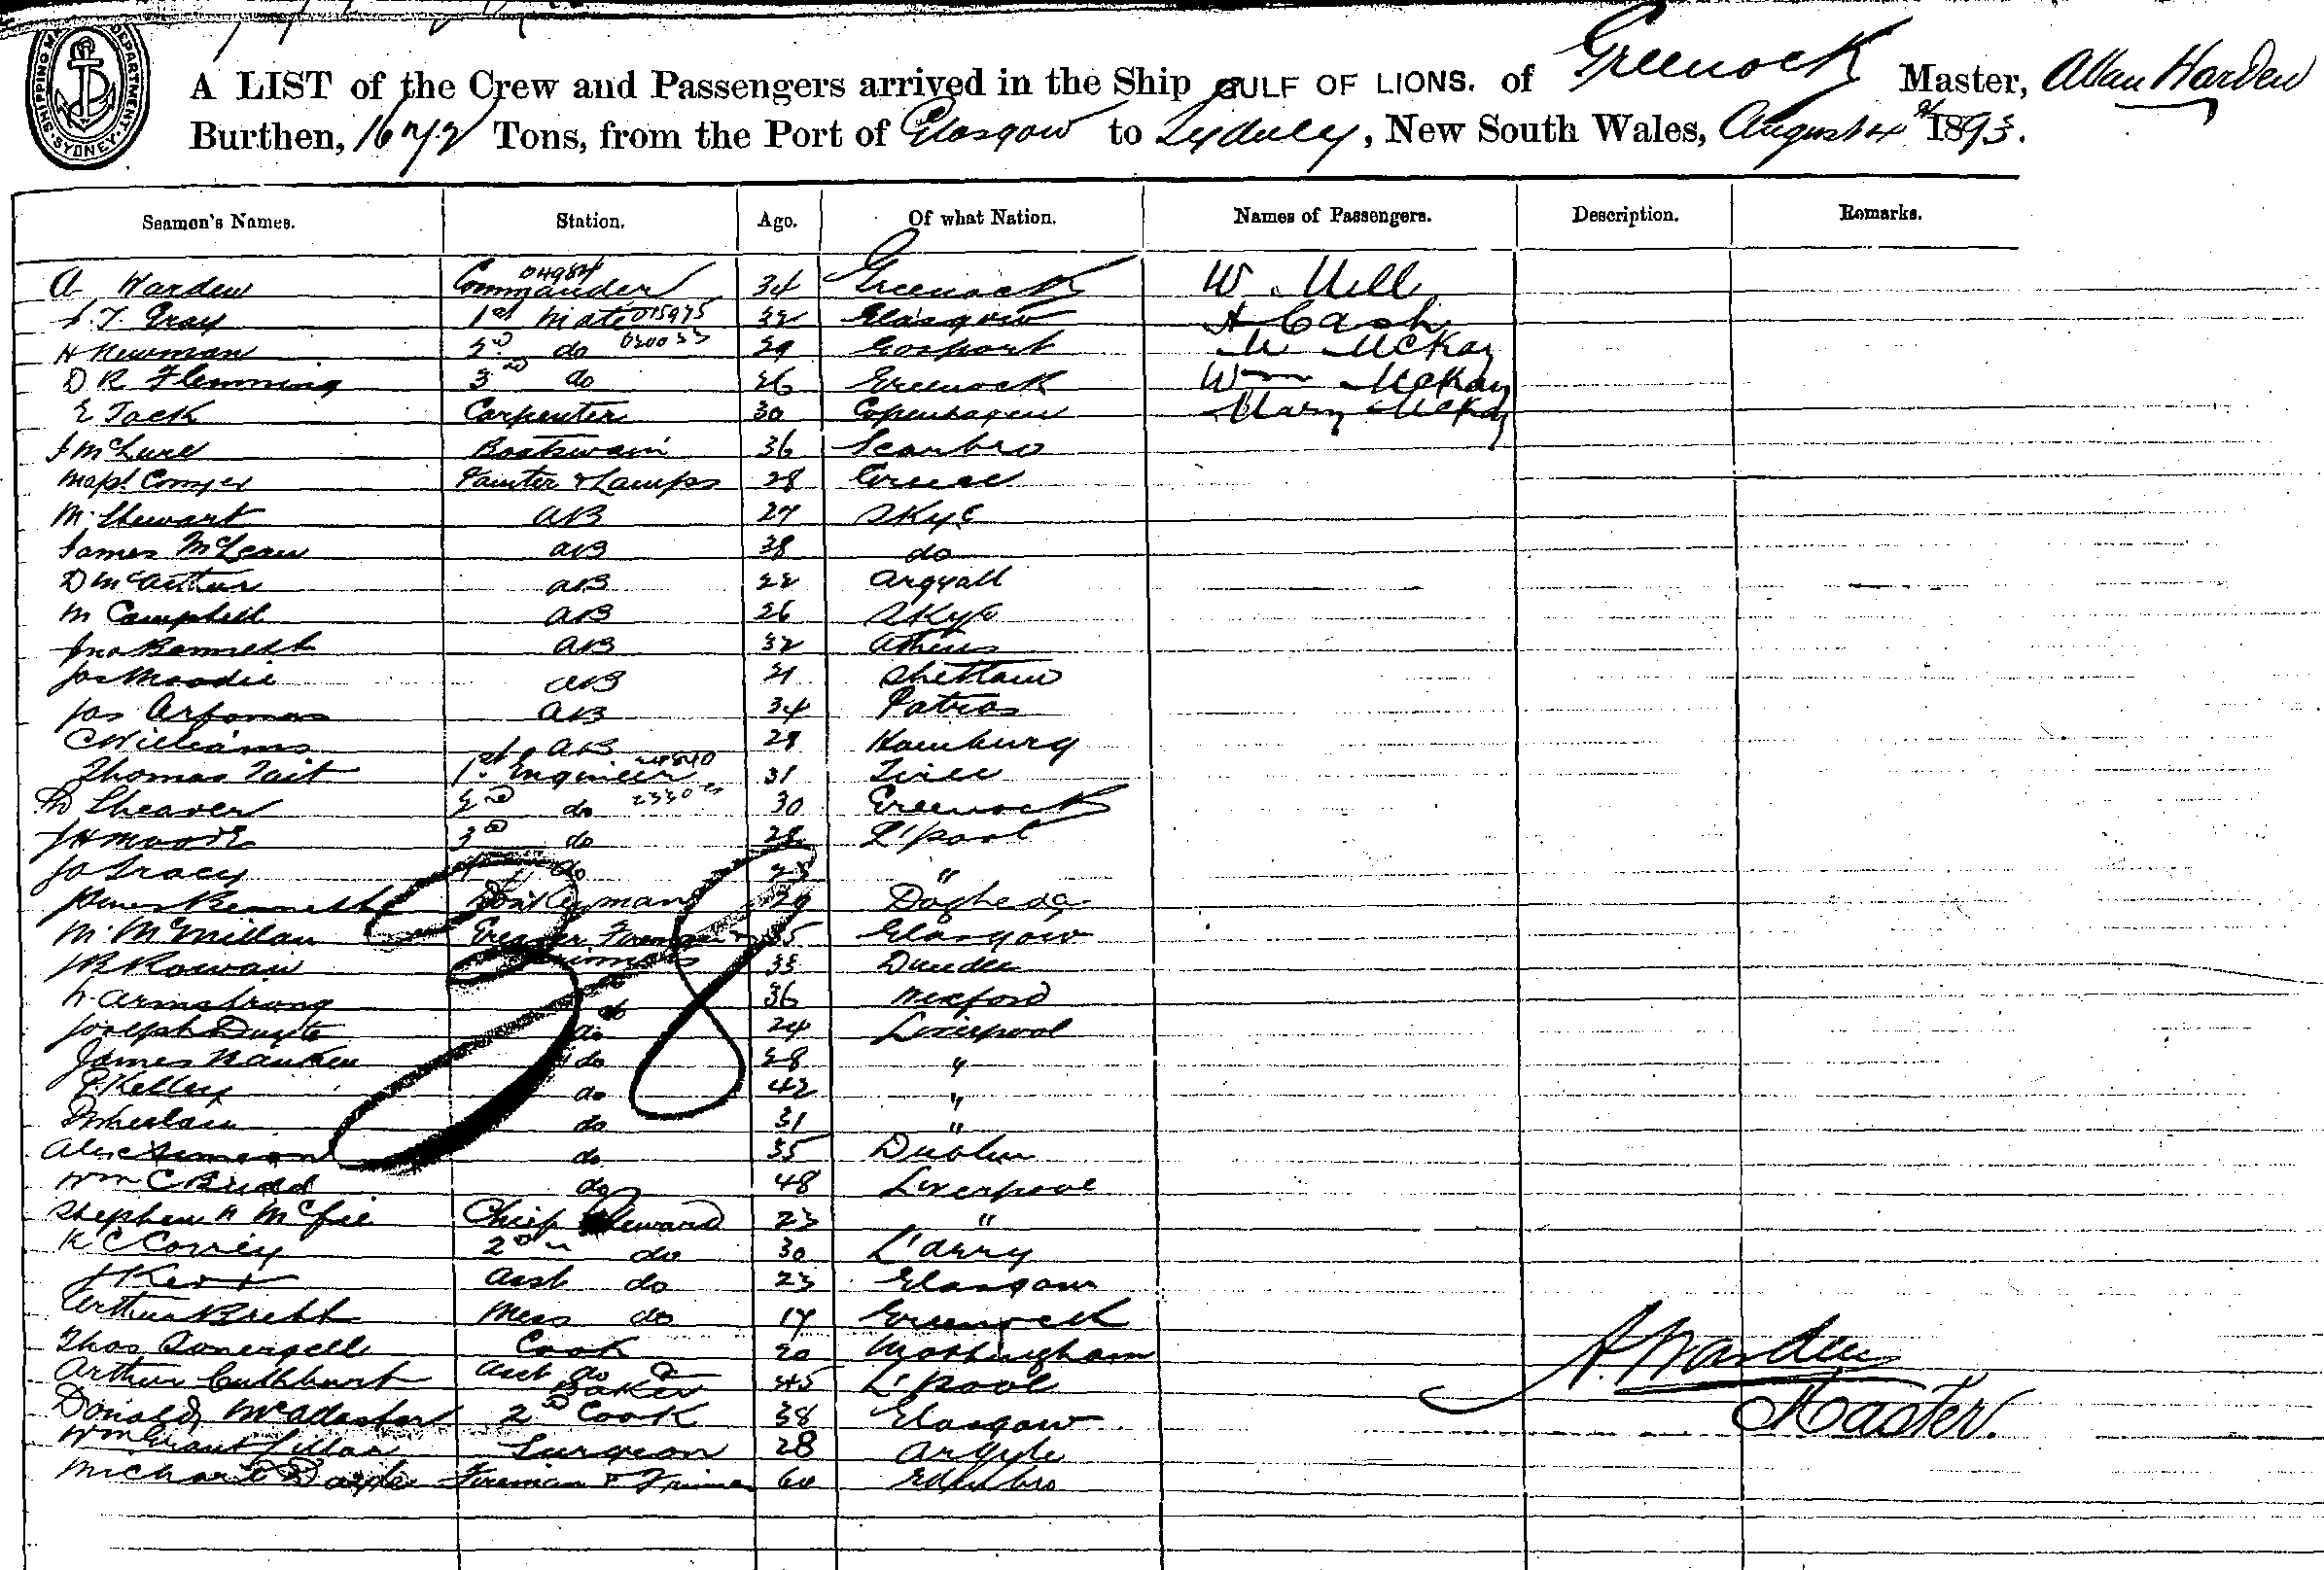 SHIPPING MA DEPARTMENT. SYDNEY.
A LIST of the Crew and Passengers arrived in the Ship GULF OF LIONS. of Greenock Master, Allan Warden
Burthen, Tons, from the Port of Glasgow to Sydney, New South Wales, August 4th 1893.
Seamen's Names. Station. Age. Of what Nation. Names of Passengers. Description. Remarks.
A Warden Commander 04984 34 Greenock W. Mell
J. T. Gray 1st Mate 015975 32 Glasgow A Cash
H Newman 2nd do 29 Gosport M McKay
D R Flemming 3rd do 26 Greenock Wm McKay
E Jack Carpenter 30 Copenhagen Mary McKay
J McLure Boatswain 36 Scarbro
Painter & Lamps 28 Greece
M. Stewart AB 27 Skye
James McLean AB 38 do
D McArthur AB 22 Argyall
M Campbell AB 26 Skye
Jno Bennett AB 32 Athens
Jas Moodie AB 21
Jas AB 34 Patras
C Williams AB 28 Hamburg
Thomas Tait 1st Engineer 31 Tiree
D Shearer 2nd do 30 Greenock
J H Moore 3rd do 28 L'pool
Jo Tracy 4th do 23 "
James Bennett Donkeyman 29
M. McMillan Greaser Fireman & 35 Glasgow
J B Rowan Trimmers 33 Dundee
Armstrong do 36 Wexford
Joseph do 24 Liverpool
James do 28 "
P. Kelley do 42 "
do 31 "
Alex Simeon do 35 Dublin
Wm C Budd do 48 Liverpool
Stephen A McFie Chief Steward 23 "
K C Correy 2nd do 30 L'derry
J Kerr Asst do 23 Glasgow
Arthur Brett Mess do 17 Greenock
Thos Cook 20 Nottingham
Arthur Cuthburt Asst do & Baker 45 L'pool
Donald McAlaster 2nd Cook 38 Glasgow
Wm Grant Surgeon 28 Argyle
Michael Fireman & Trimmer 60 Edinbro
38
A. Warden
Master.